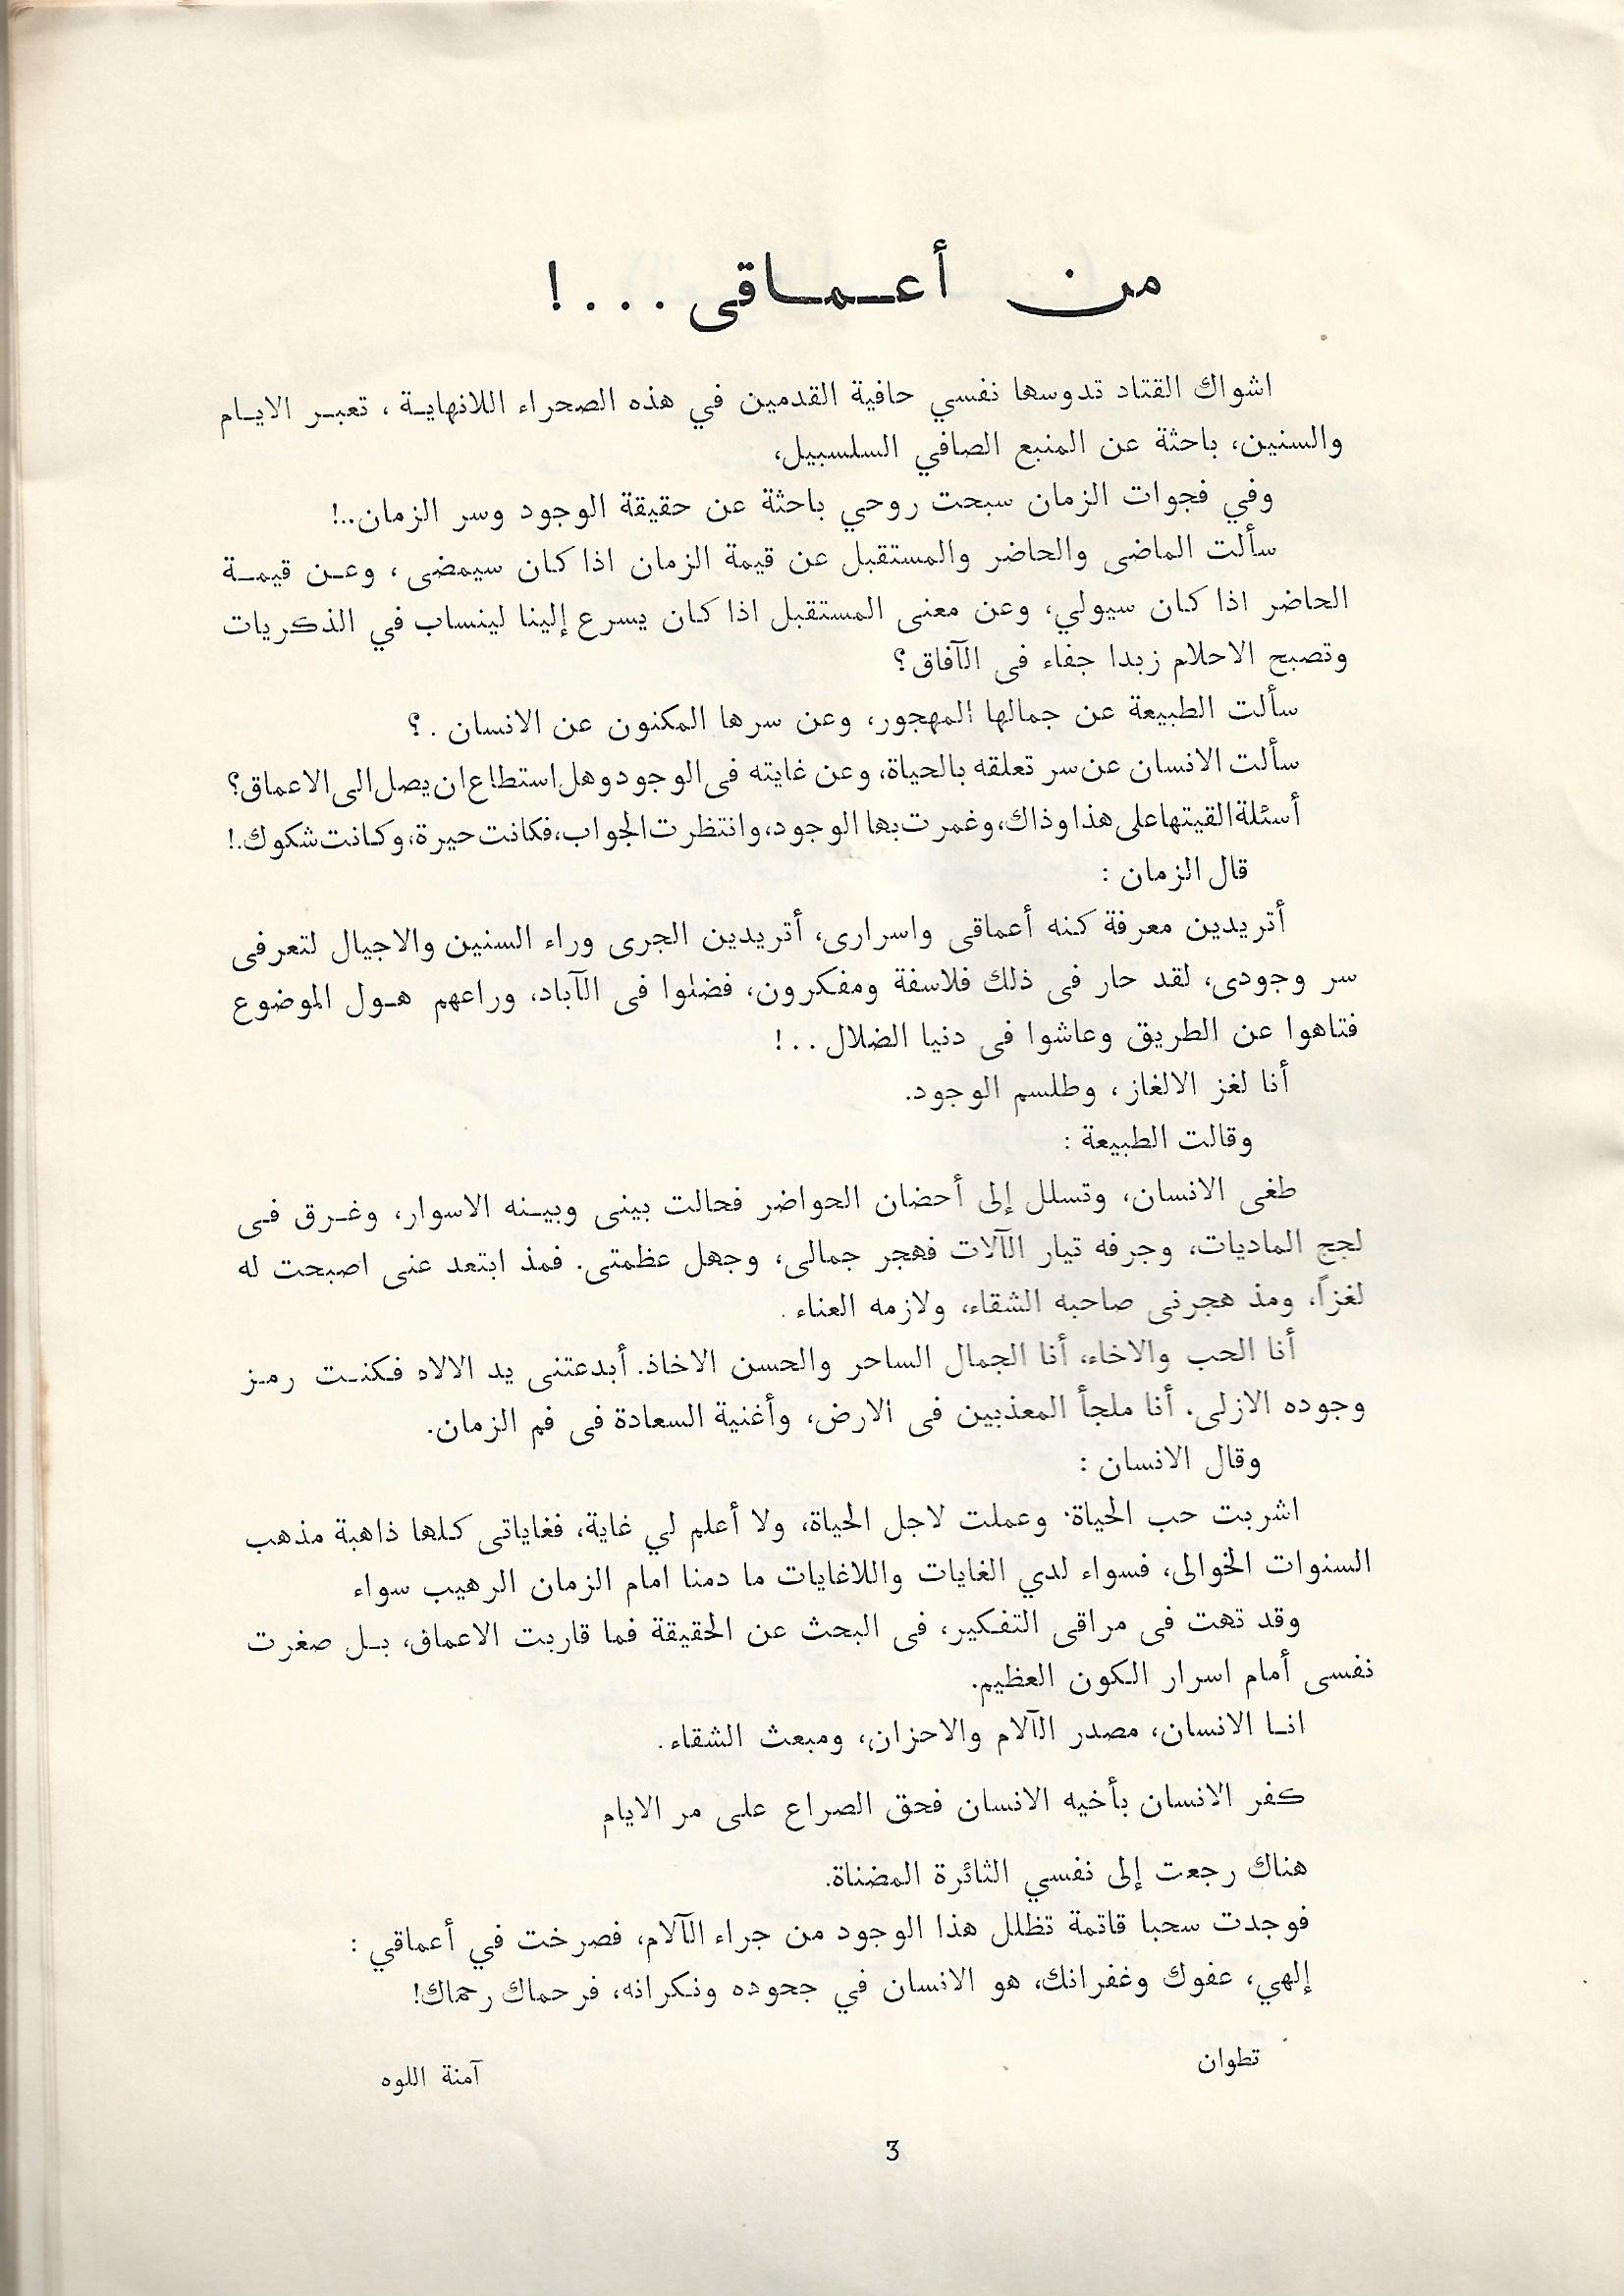 من أعماقى . . . !
اشواك القتاد تدوسها نفسي حافية القدمين في هذه الصحراء اللانهاية ، تعبر الايام
والسنين، باحثة عن المنبع الصافي السلسبيل،
وفي فجوات الزمان سبحت روحي باحثة عن حقيقة الوجود وسر الزمان..!
سألت الماضى والحاضر والمستقبل عن قيمة الزمان اذا كان سيمضى ، وعن قيمة
الحاضر اذا كان سيولي، وعن معنى المستقبل اذا كان يسرع إلينا لينساب في الذكريات
وتصبح الاحلام زبدا جفاء فى الآفاق؟
سألت الطبيعة عن جمالها المهجور، وعن سرها المكنون عن الانسان . ؟
سألت الانسان عن سر تعلقه بالحياة، وعن غايته فى الوجود وهل استطاع ان يصل الى الاعماق؟
أسئلة القيتها على هذا وذاك، وغمرت بها الوجود، وانتظرت الجواب، فكانت حيرة، وكانت شكوك.!
قال الزمان :
أتريدين معرفة كنه أعماقى واسرارى، أتريدين الجرى وراء السنين والاجيال لتعرفى
سر وجودى، لقد حار فى ذلك فلاسفة ومفكرون، فضلوا فى الآباد، وراعهم هول الموضوع
فتاهوا عن الطريق وعاشوا فى دنيا الضلال . . !
أنا لغز الالغاز ، وطلسم الوجود.
وقالت الطبيعة :
طغى الانسان، وتسلل إلى أحضان الحواضر فحالت بينى وبينه الاسوار، وغرق فى
لجج الماديات، وجرفه تيار الآلات فهجر جمالى، وجهل عظمتى. فمذ ابتعد عنى اصبحت له
لغزاً، ومذ هجرنى صاحبه الشقاء، ولازمه العناء .
أنا الحب والاخاء، أنا الجمال الساحر والحسن الاخاذ. أبدعتنى يد الالاه فكنت رمز
وجوده الازلى. أنا ملجأ المعذبين فى الارض، وأغنية السعادة فى فم الزمان.
وقال الانسان :
اشربت حب الحياة. وعملت لاجل الحياة، ولا أعلم لي غاية، فغاياتى كلها ذاهبة مذهب
السنوات الخوالى، فسواء لدي الغايات واللاغايات ما دمنا امام الزمان الرهيب سواء
وقد تهت فى مراقى التفكير، فى البحث عن الحقيقة فما قاربت الاعماق، بل صغرت
نفسى أمام اسرار الكون العظيم.
انا الانسان، مصدر الآلام والاحزان، ومبعث الشقاء.
كفر الانسان بأخيه الانسان فحق الصراع على مر الايام
هناك رجعت إلى نفسي الثائرة المضناة.
فوجدت سحبا قاتمة تظلل هذا الوجود من جراء الآلام، فصرخت في أعماقي :
إلهي، عفوك وغفرانك، هو الانسان في جحوده ونكرانه، فرحماك رحماك!
تطوان
آمنة اللوه
3